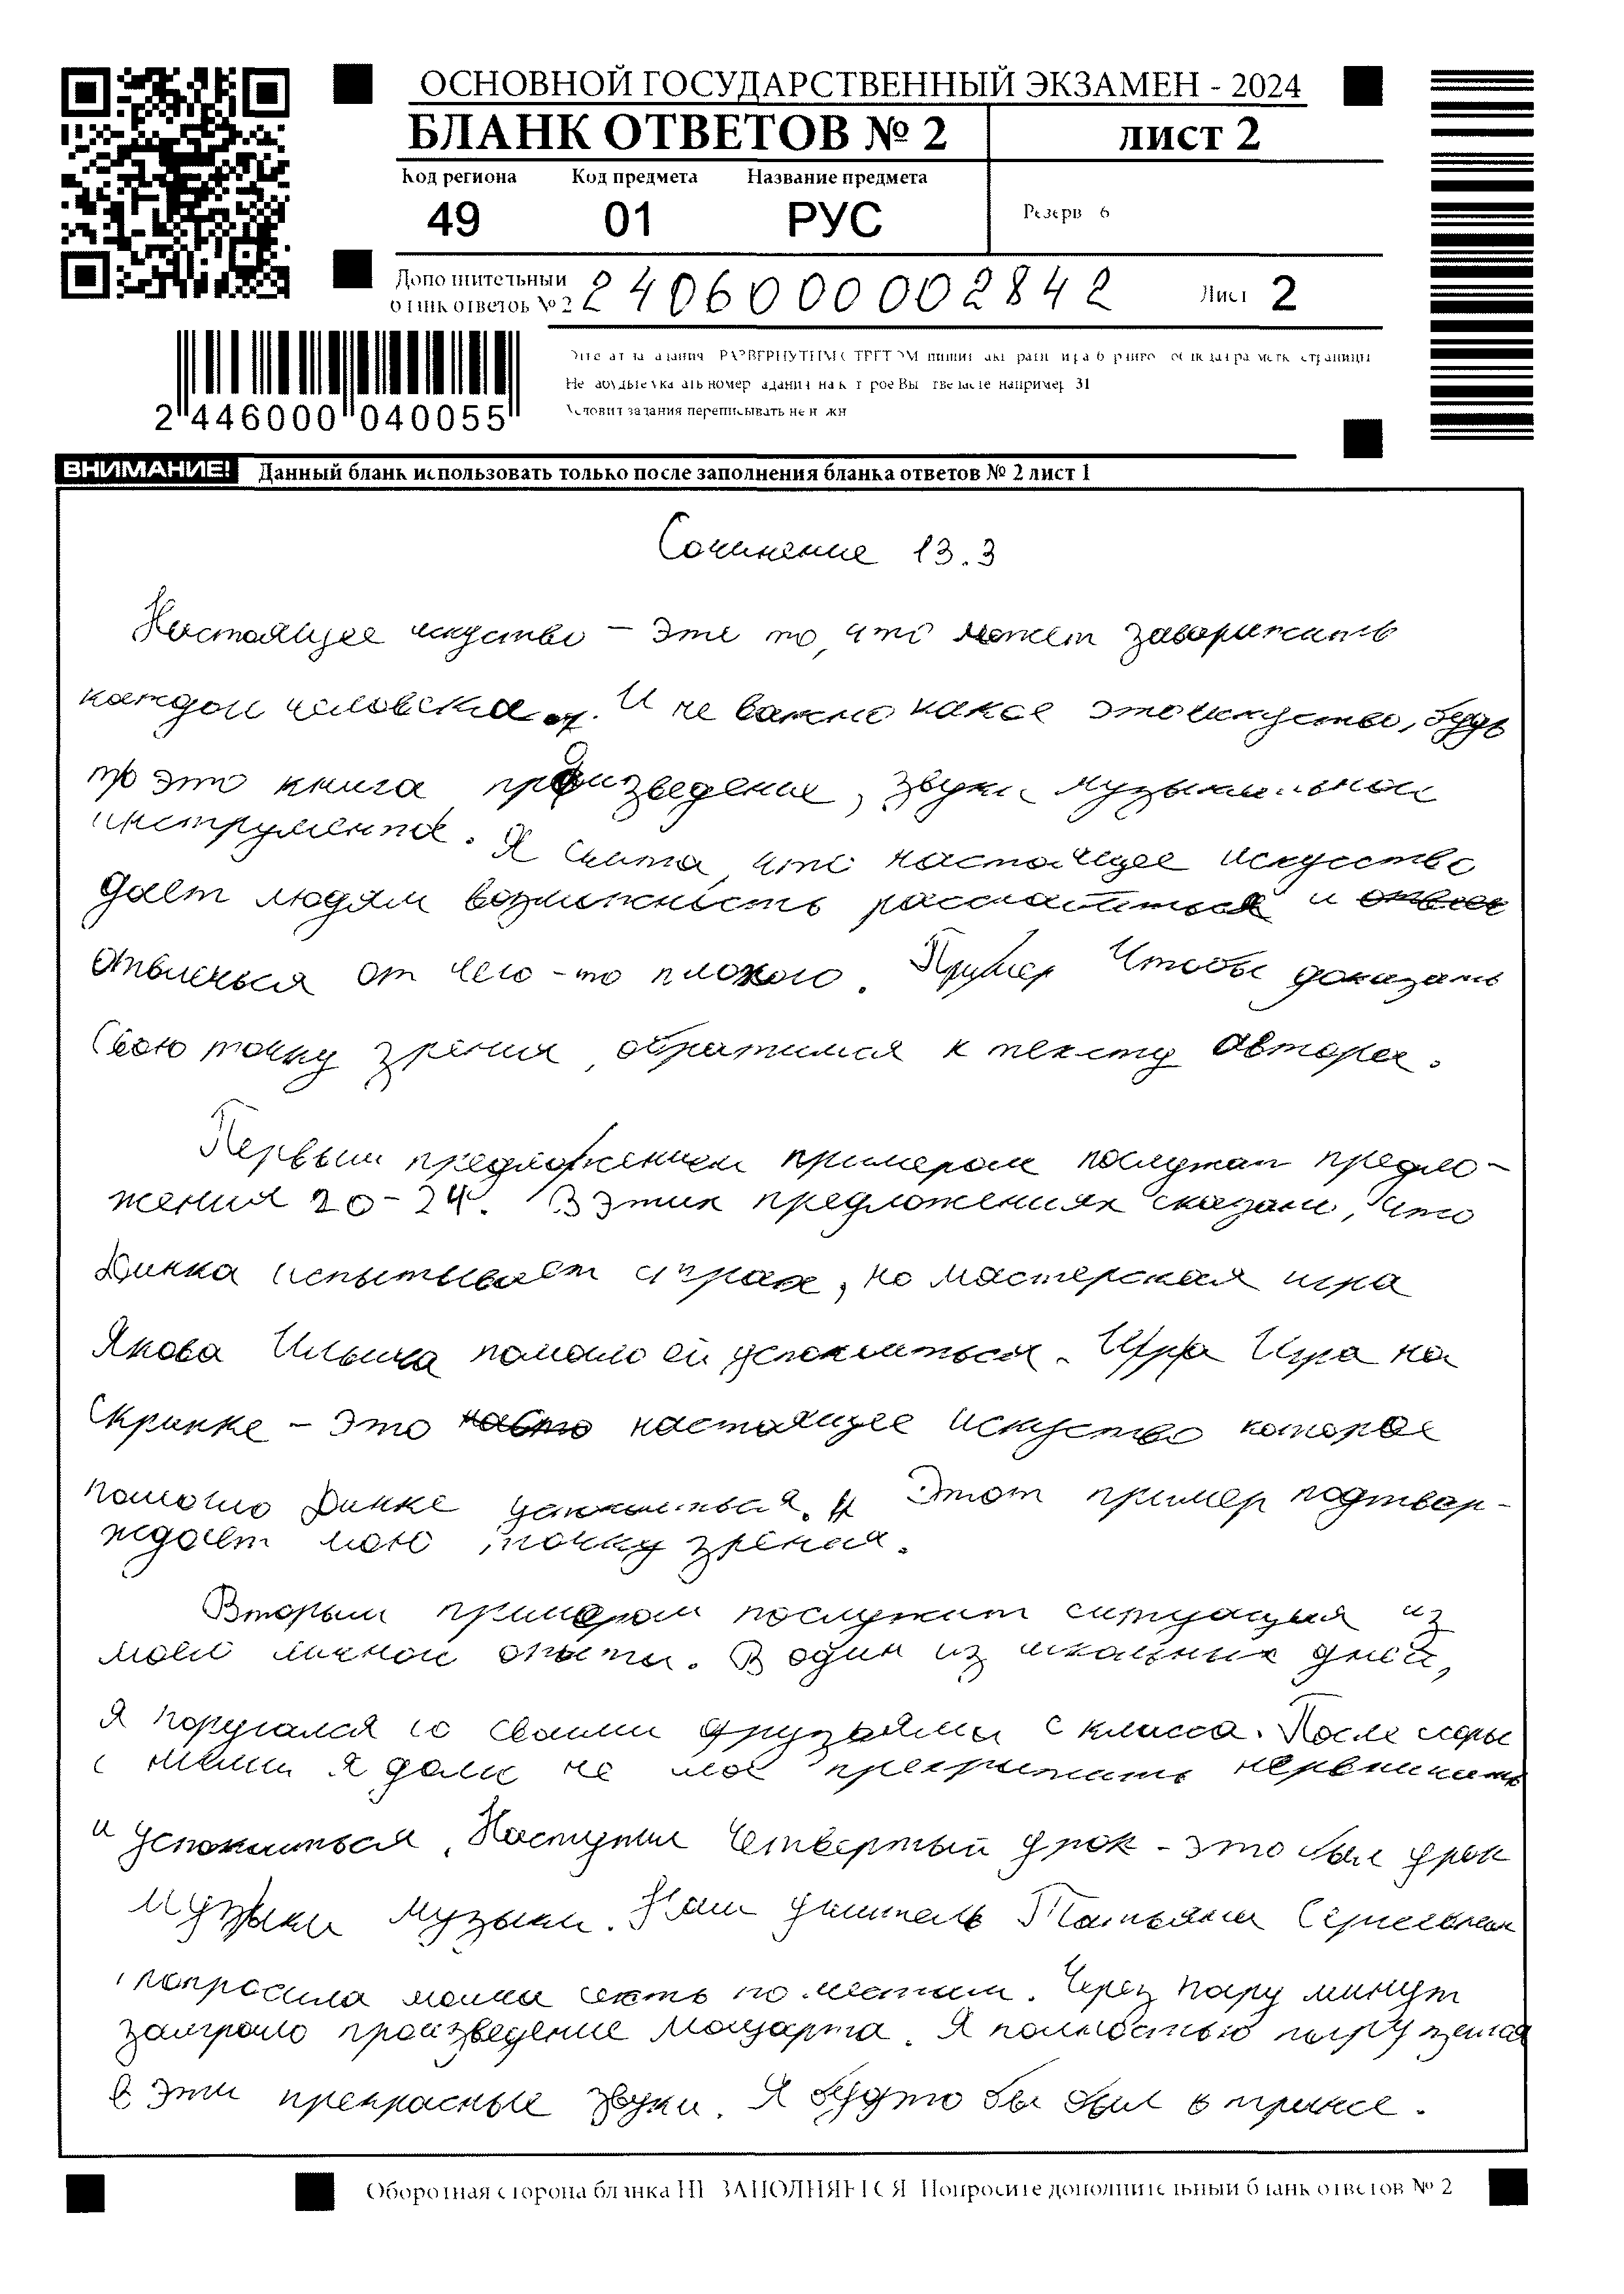 ОСНОВНОЙ ГОСУДАРСТВЕННЫЙ ЭКЗАМЕН - 2024
БЛАНК ОТВЕТОВ № 2
ЛИСТ 2
Код региона Код предмета Название предмета
49 01 РУС
Резерв 6
Дополнительный
бланк ответов № 2
2406000002842
Лист 2
2 446000 040055
Условия задания переписывать не нужно
ВНИМАНИЕ! Данный бланк использовать только после заполнения бланка ответов № 2 лист 1
Сочинение 13.3
Настоящее искуство – это то, что может заворижить
каждои человека. И не важно какое это искуство, будь
то это книга, произведение, звуки музыкальной
инструмента. Я счита, что настоящее искусство
дает людям возможность расслабиться и
отвлечься от чего-то плохого. Пример Чтобы доказать
свою точку зрения, обратимся к тексту автора.
Первым предложением примером послужат предло-
жения 20-24. В этих предложениях сказано, что
Динка испытывает страх, но мастерская игра
Якова Ильича помогло ей успокоиться. Игра на
скрипке – это настоящее искуство которое
помогло Динке успокоиться. Этот пример подтвер-
ждает мою точку зрения.
Вторым примером послужит ситуация из
моей личной опыта. В один из школьных дней,
я поругался со своими друзьями с класса. После ссоры
с ними я долго не мог прекратить нервничать
и успокоиться. Наступил четвертый урок - это был урок
музыки музыки. Наш учитель Татьяна Сергеевна
попросила молча сесть по местам. Через пару минут
заиграло произведение Моцарта. Я полностью погрузился
в эти прекрасные звуки. Я будто бы был в трансе.
Оборотная сторона бланка НЕ ЗАПОЛНЯЕТСЯ. Попросите дополнительный бланк ответов № 2